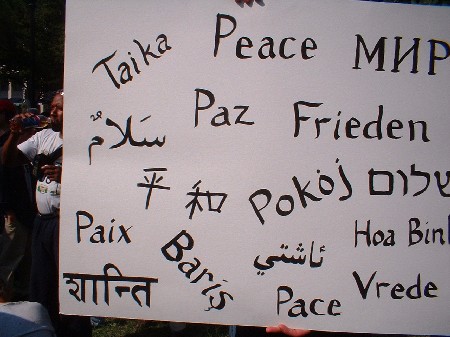 Taika
Peace
МИР
Paz
Frieden
سَلَامٌ
平和
Pokój
שלום
Paix
Barış
ئاشتي
Hoa Binh
शान्ति
Pace
Vrede